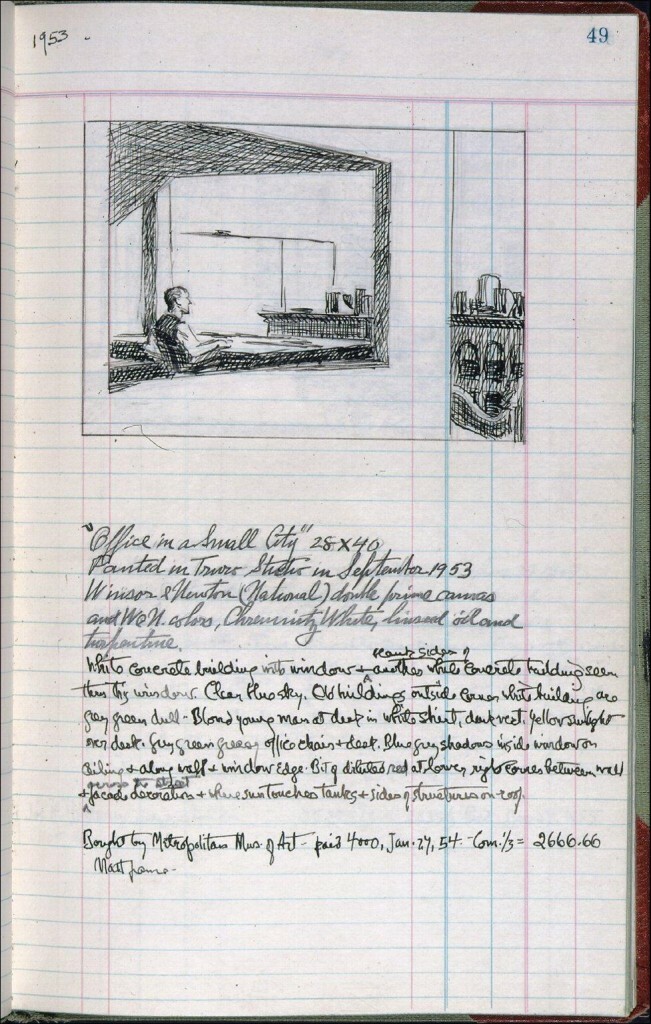 1953 -
49
"Office in a Small City" 28 x 40
Painted in Truro Studio in September 1953
Winsor & Newton (National) double prime canvas
and W & N. colors, Chremnitz White, linseed oil and
turpentine.
sides of
White concrete building into window + another white concrete building seen
thru this window. Clear blue sky. Old buildings outside corner white building are
grey green dull - Blond young man at desk in white shirt, dark vest, yellow sunlight
over desk. Grey green greasy office chair + desk. Blue grey shadows inside window on
ceiling + along wall + window edge. Bit of diluted red at lower right corner between wall
across the street
+ facade decoration + where sun touches tanks + sides of structures on roof.
Bought by Metropolitan Mus. of Art - paid 4000, Jan. 27, 54. - Com. 1/3 = 2666.66